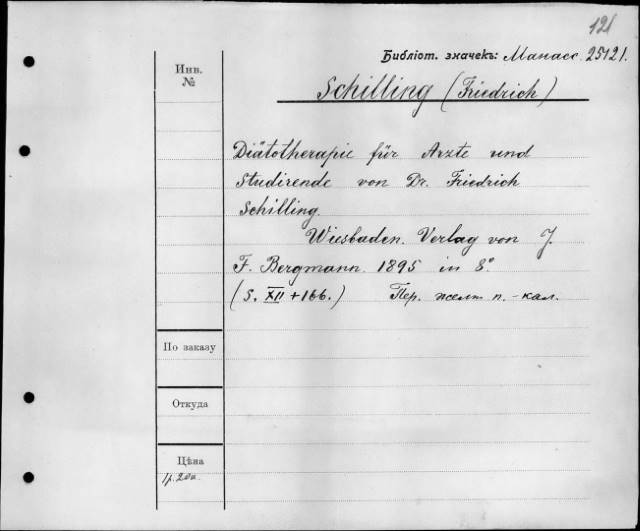 121
Библіот. значекъ: Манасс. 25121.
Инв.
№
Schilling (Friedrich)
Diätotherapie für Arzte und
Studirende von Dr. Friedrich
Schilling.
Wiesbaden. Verlag von J.
F. Bergmann. 1895 in 8°.
(S. XII + 166.) Пер. желт п.-кал.
По заказу
Откуда
Цѣна
1р. 20к.